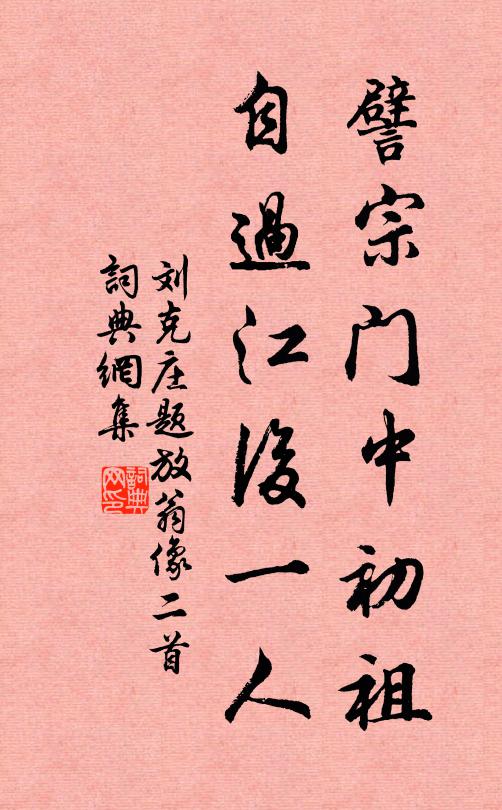 譬宗门中初祖
自過江後一人
刘克庄题放翁像二首
詞典網集
詞典網印